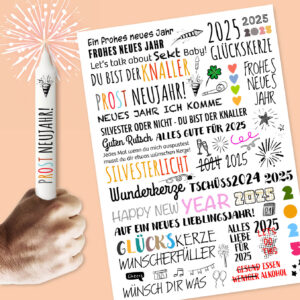 Ein Frohes neues Jahr
FROHES NEUES JAHR
2025 2025
2025
Let's talk about Sekt Baby!
GLÜCKSKERZE
DU BIST DER KNALLER
PROST NEUJAHR!
FROHES
NEUES
JAHR
NEUES JAHR ICH KOMME
SILVESTER ODER NICHT - DU BIST DER KNALLER
Guten Rutsch ALLES GUTE FÜR 2025
Jedes Mal wenn du mich auspustest
musst du dir etwas wünschen Kerze!
SILVESTERLICHT
2015
Wunderkerze TSCHÜSS2024 2025
HAPPY NEW YEAR 2025
AUF EIN NEUES LIEBLINGSJAHR!
GLÜCKSKERZE
WUNSCHERFÜLLER
ALLES
LIEBE
FÜR
2025
Cheers
WÜNSCH DIR WAS
GESUND ESSEN
WENIGER ALKOHOL
PROST NEUJAHR!